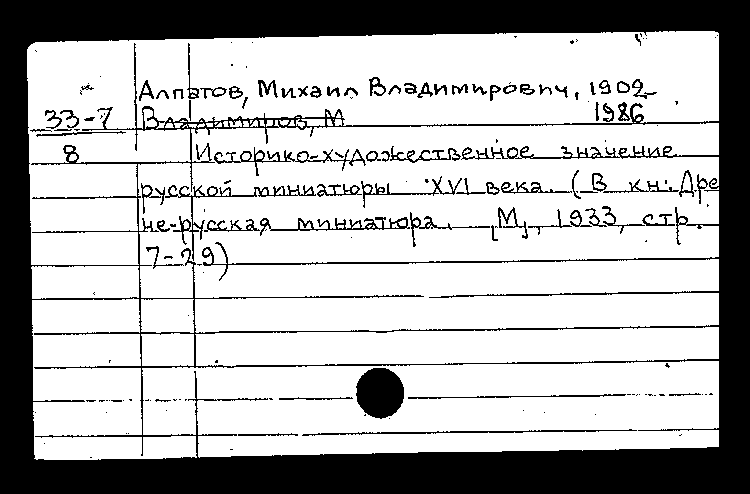 Алпатов, Михаил Владимирович, 1902-
1986
33-7 Владимиров, М
8 Историко-художественное значение
русской миниатюры XVI века. (В кн: Дре
не-русская миниатюра. [М], 1933, стр.
7-29)